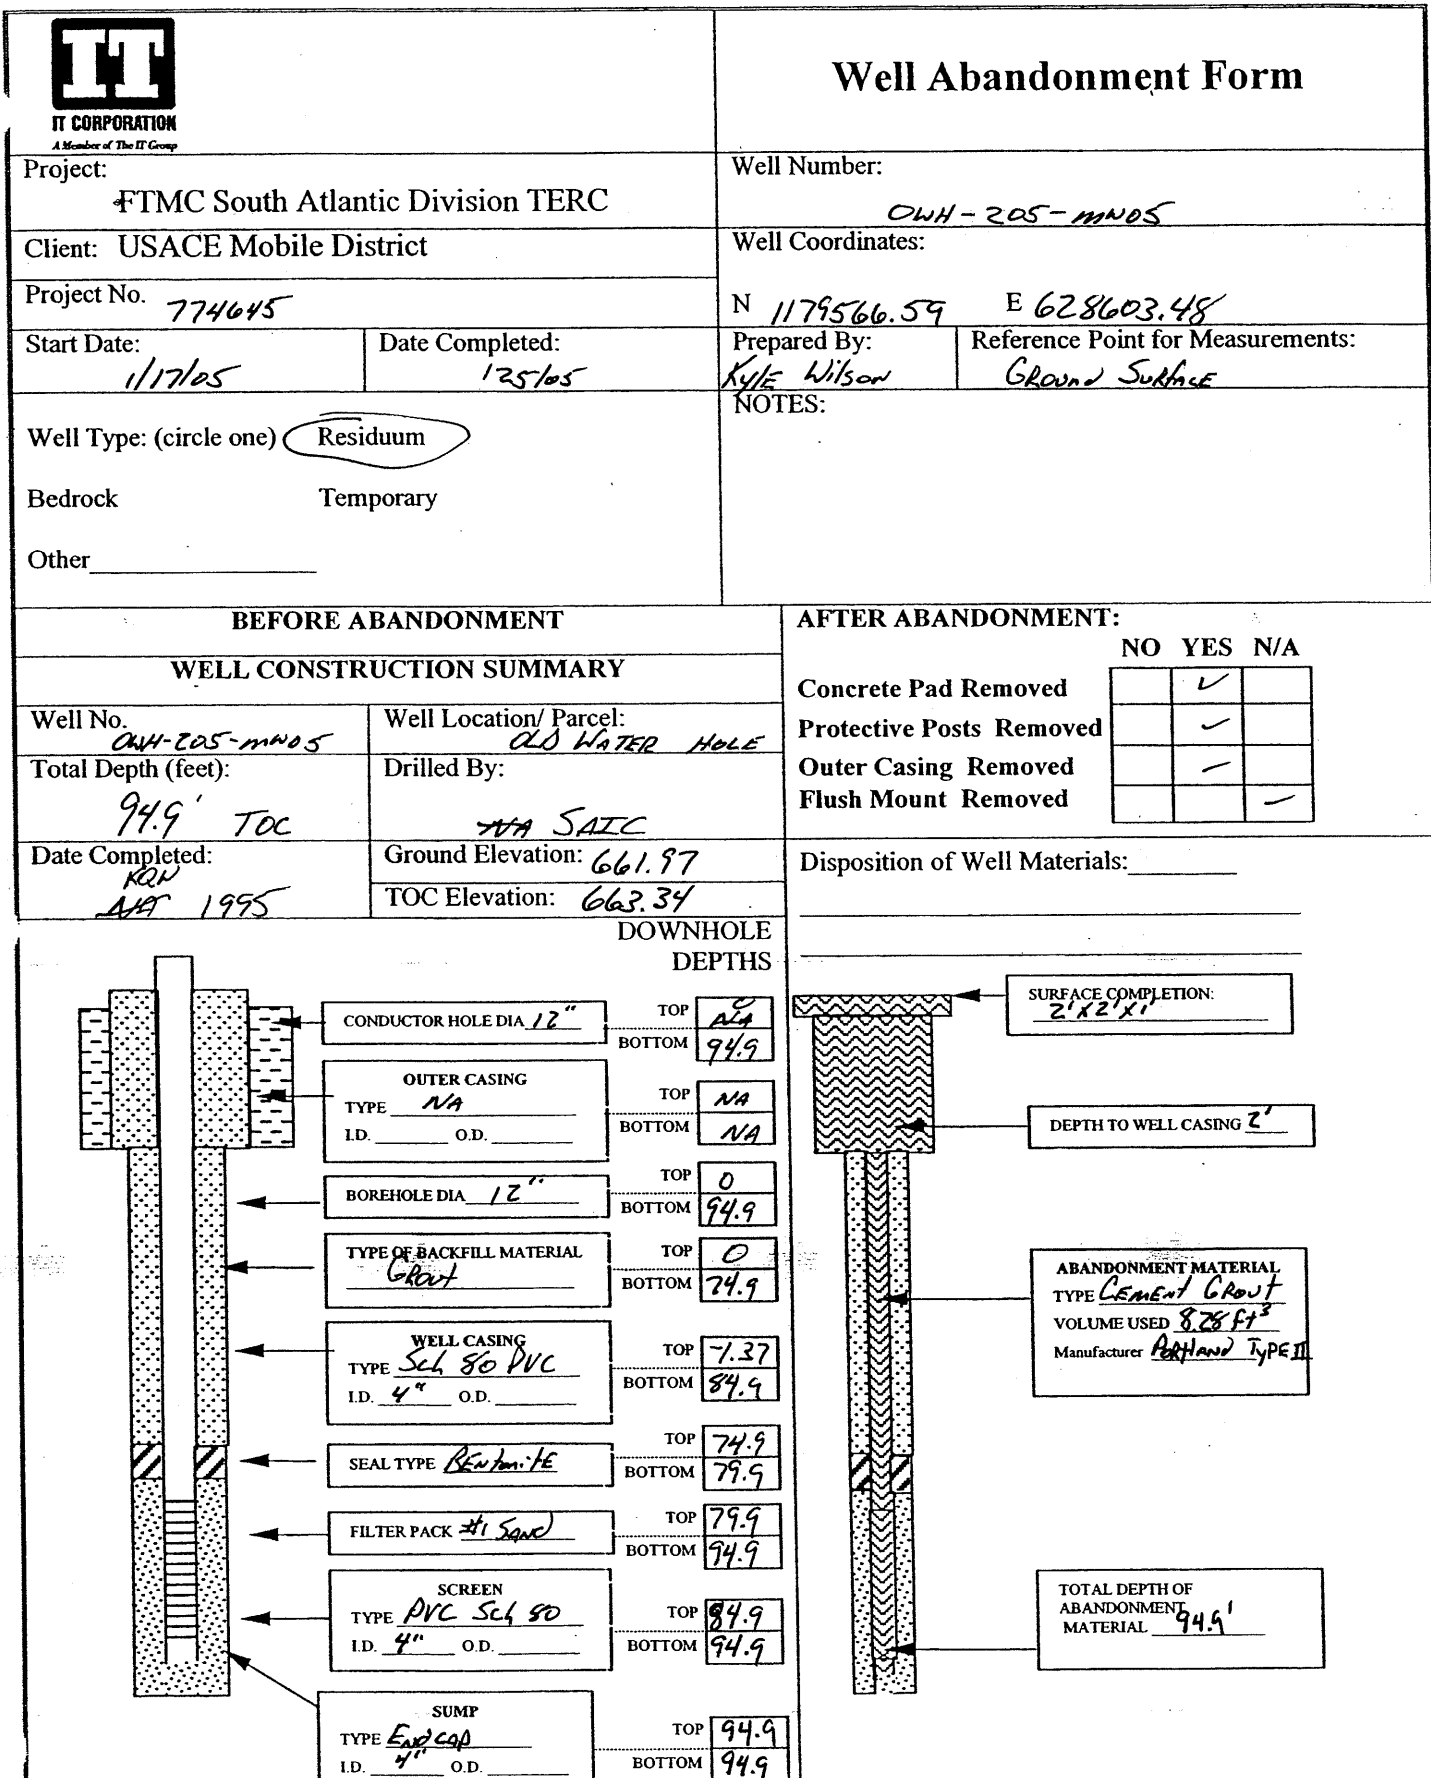 IT
IT CORPORATION
A Member of The IT Group
Well Abandonment Form
Project:
FTMC South Atlantic Division TERC
Well Number:
OWH-205-MW05
Client: USACE Mobile District
Well Coordinates:
N 1179566.59 E 628603.48
Project No. 774645
Start Date:
1/17/05
Date Completed:
125/05
Prepared By:
Kyle Wilson
Reference Point for Measurements:
Ground Surface
Well Type: (circle one) Residuum
Bedrock Temporary
Other
NOTES:
BEFORE ABANDONMENT
WELL CONSTRUCTION SUMMARY
Well No.
OWH-205-MW05
Well Location/ Parcel:
OLD WATER HOLE
Total Depth (feet):
94.9' TOC
Drilled By:
NA SAIC
Date Completed:
NA 1995
Ground Elevation: 661.97
TOC Elevation: 663.34
AFTER ABANDONMENT:
NO YES N/A
Concrete Pad Removed
Protective Posts Removed
Outer Casing Removed
Flush Mount Removed
Disposition of Well Materials:
DOWNHOLE
DEPTHS
CONDUCTOR HOLE DIA 12"
TOP 0 NA
BOTTOM 94.9
OUTER CASING
TYPE NA
I.D. O.D.
TOP NA
BOTTOM NA
BOREHOLE DIA 12"
TOP 0
BOTTOM 94.9
TYPE OF BACKFILL MATERIAL
Grout
TOP 0
BOTTOM 74.9
WELL CASING
TYPE Sch 80 PVC
I.D. 4" O.D.
TOP -1.37
BOTTOM 84.9
SEAL TYPE Bentonite
TOP 74.9
BOTTOM 79.9
FILTER PACK #1 Sand
TOP 79.9
BOTTOM 94.9
SCREEN
TYPE PVC Sch 80
I.D. 4" O.D.
TOP 84.9
BOTTOM 94.9
SUMP
TYPE End cap
I.D. 4" O.D.
TOP 94.9
BOTTOM 94.9
SURFACE COMPLETION:
2'x2'x1'
DEPTH TO WELL CASING 2'
ABANDONMENT MATERIAL
TYPE Cement Grout
VOLUME USED 8.28 ft³
Manufacturer Portland Type II
TOTAL DEPTH OF
ABANDONMENT
MATERIAL 94.9'